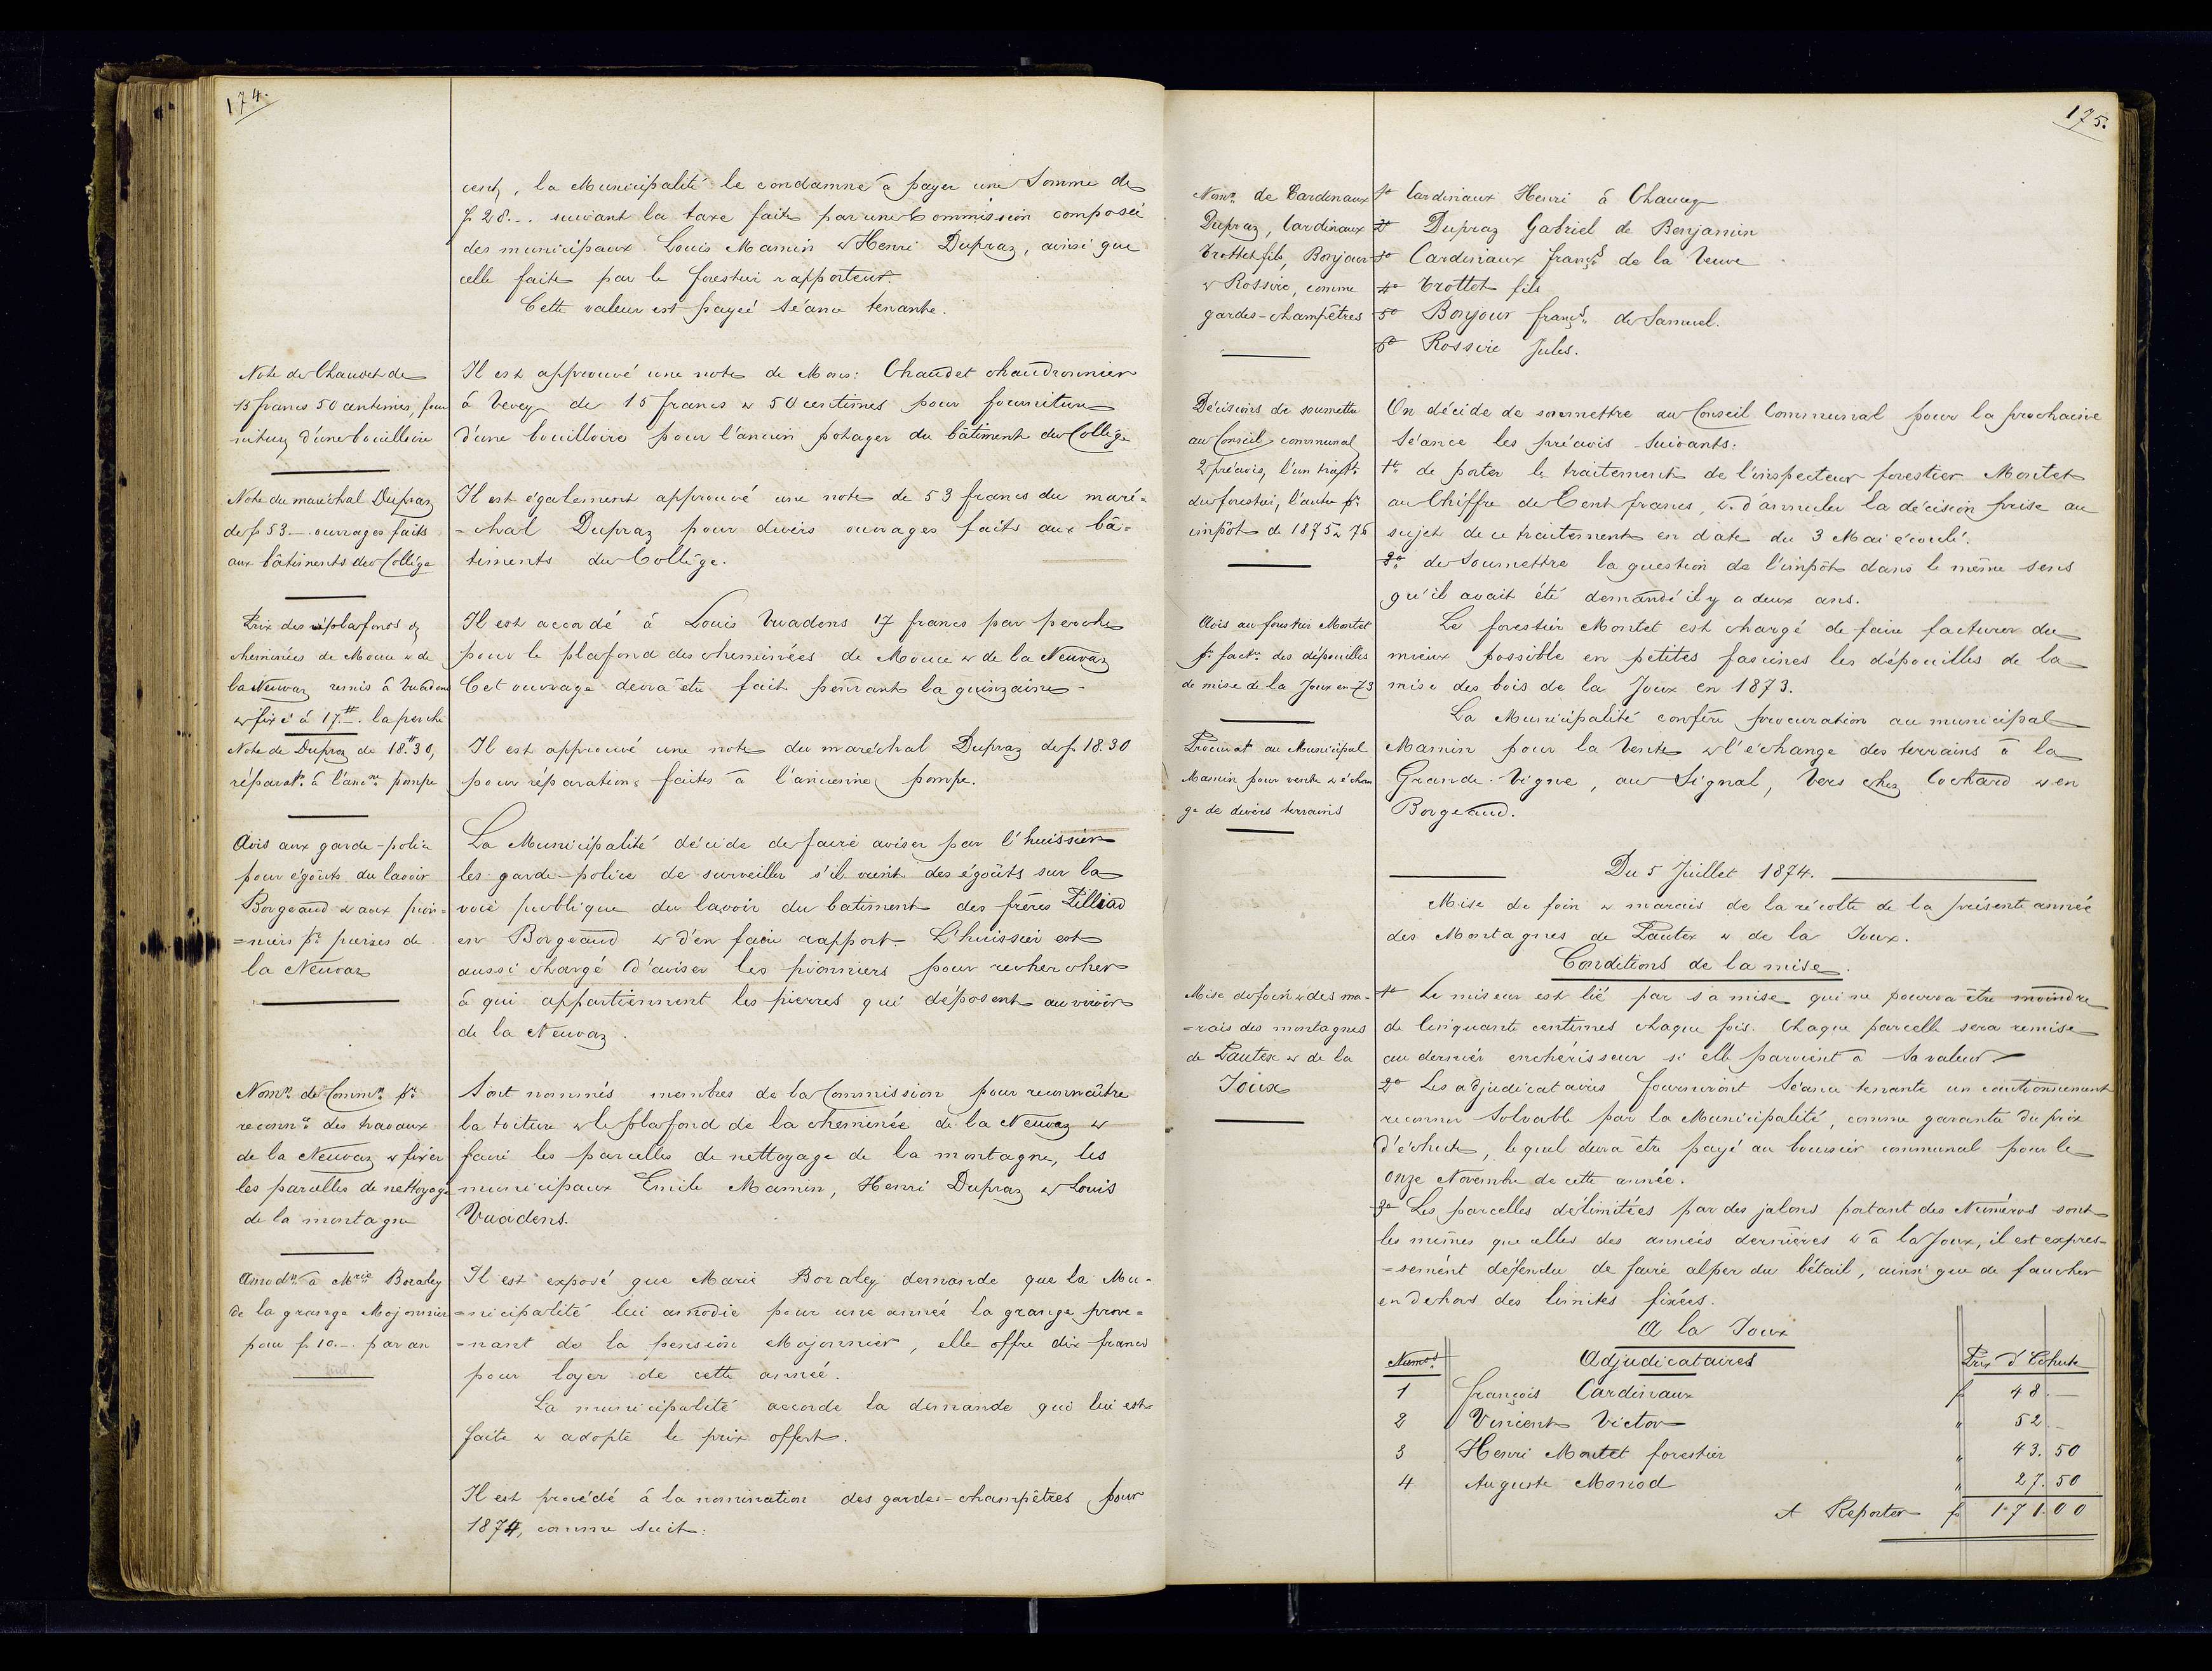 174.
cent, la Municipalité le condamne à payer une Somme de
f 28.-. suivant la taxe faite par une Commission composée
des municipaux Louis Mamin & Henri Dupraz, ainsi que
celle faite par le forestier rapporteur.
Cette valeur est payée séance tenante.
Note de Chaudet de
15 francs 50 centimes, four
niture d'une bouilloire
Il est approuvé une note de Mons: Chaudet chaudronnier
à Vevey de 15 francs & 50 centimes pour fourniture
d'une bouilloire pour l'ancien potager du bâtiment du Collège
Note du maréchal Dupraz
de f 53.- ouvrages faits
aux bâtiments du Collège
Il est également approuvé une note de 53 francs du maré-
-chal Dupraz pour divers ouvrages faits aux bâ-
timents du Collège.
Prix des plafonds des
cheminées de Mouce & de
la Neuvaz remis à Vuadens
& fixé à 17.- la perche
Il est accordé à Louis Vuadens 17 francs par perche
pour le plafond des cheminées de Mouce & de la Neuvaz
Cet ouvrage devra être fait pendant la quinzaine-
Note de Dupraz de 18.30,
réparatn. à l'ancne. pompe
Il est approuvé une note du maréchal Dupraz de f 18.30
pour réparations faites à l'ancienne pompe.
Avis aux garde-police
pour égoûts du lavoir
Borgeaud & aux pion-
=niers pr. pierres de
la Neuvaz
La Municipalité décide de faire aviser par l'huissier
les garde-police de surveiller s'il vient des égoûts sur la
voie publique du lavoir du batiment des frères Pilliod
en Borgeaud & d'en faire rapport- L'huissier est
aussi chargé d'aviser les pionniers pour rechercher
à qui appartiennent les pierres qui déposent au viroir
de la Neuvaz.
Nomn. de Commn. pr.
reconnce. des travaux
de la Neuvaz & fixer
les parcelles de nettoyage
de la montagne
Sont nommés membres de la Commission pour reconnaître
la toiture & le plafond de la cheminée de la Neuvaz &
faire les parcelles de nettoyage de la montagne, les
municipaux Emile Mamin, Henri Dupraz & Louis
Vuadens.
Amodn. à Mrie. Boraley
de la grange Mojonnier
pour f 10.-. par an
Il est exposé que Marie Boraley demande que la Mu-
=nicipalité lui amodie pour une année la grange prove=
=nant de la pension Mojonnier, elle offre dix francs
pour loyer de cette année.
La municipalité accorde la demande qui lui est
faite & adopte le prix offert.
Il est procédé à la nomination des gardes-champêtres pour
1874, comme suit:
175.
Nomn. de Cardinaux
Dupraz, Cardinaux
Trottet fils, Bonjour
& Rossire, comme
gardes-champêtres
1o Cardinaux Henri à Chaucey
2o Dupraz Gabriel de Benjamin
3o Cardinaux françs de la Veuve
4o Trottet fils
5o Bonjour françs. de Samuel.
6o Rossire Jules.
Décisions de soumettre
au Conseil communal
2 préavis, l'un trait.
du forestier, l'autre pr.
impôt de 1875 & 76
On décide de soumettre au Conseil Communal pour la prochaine
séance les préavis suivants:
1o de porter le traitement de l'inspecteur forestier Montet
au Chiffre de Cent francs, & d'annuler la décision prise au
sujet de ce traitement en date du 3 Mai écoulé.
2o de Soumettre la question de l'impôt dans le même sens
qu'il avait été demandé il y a deux ans.
Avis au forestier Montet
pr. factn. des dépouilles
de mise de la Joux en 73
Le forestier Montet est chargé de faire facturer du
mieux possible en petites fascines les dépouilles de la
mise des bois de la Joux en 1873.
Procurat. au Municipal
Mamin pour vente & échan
ge de divers terrains
La Municipalité confère procuration au municipal
Mamin pour la Vente & l'échange des terrains à la
Grande-Vigne, au Signal, Vers chez Cochard & en
Borgeaud.
Du 5 Juillet 1874.
Mise de foin & marais de la récolte de la présente année
des Montagnes de Pautex & de la Joux.
Conditions de la mise.
Mise de foin & des ma-
=rais des montagnes
de Pautex & de la
Joux
1o Le miseur est lié par sa mise qui ne pourra être moindre
de Cinquante centimes chaque fois. Chaque parcelle sera remise
au dernier enchérisseur si elle parvient à sa valeur
2o Les adjudicataires fourniront séance tenante un cautionnement
reconnu Solvable par la Municipalité, comme garantie du prix
d'échute, lequel devra être payé au boursier communal pour le
onze Novembre de cette année.
3o Les parcelles délimitées par des jalons portant des Numéros sont
les mêmes que celles des années dernières & à la Joux, il est expres-
=sément défendu de faire alper du bétail, ainsi que de faucher
en dehors des limites fixées.
A la Joux
Numos. Adjudicataires Prix d'Echute
1 françois Cardinaux f 48.-
2 Vincent Victor " 52.-
3 Henri Montet forestier " 43.50
4 Auguste Monod " 27.50
A Reporter f 171.00